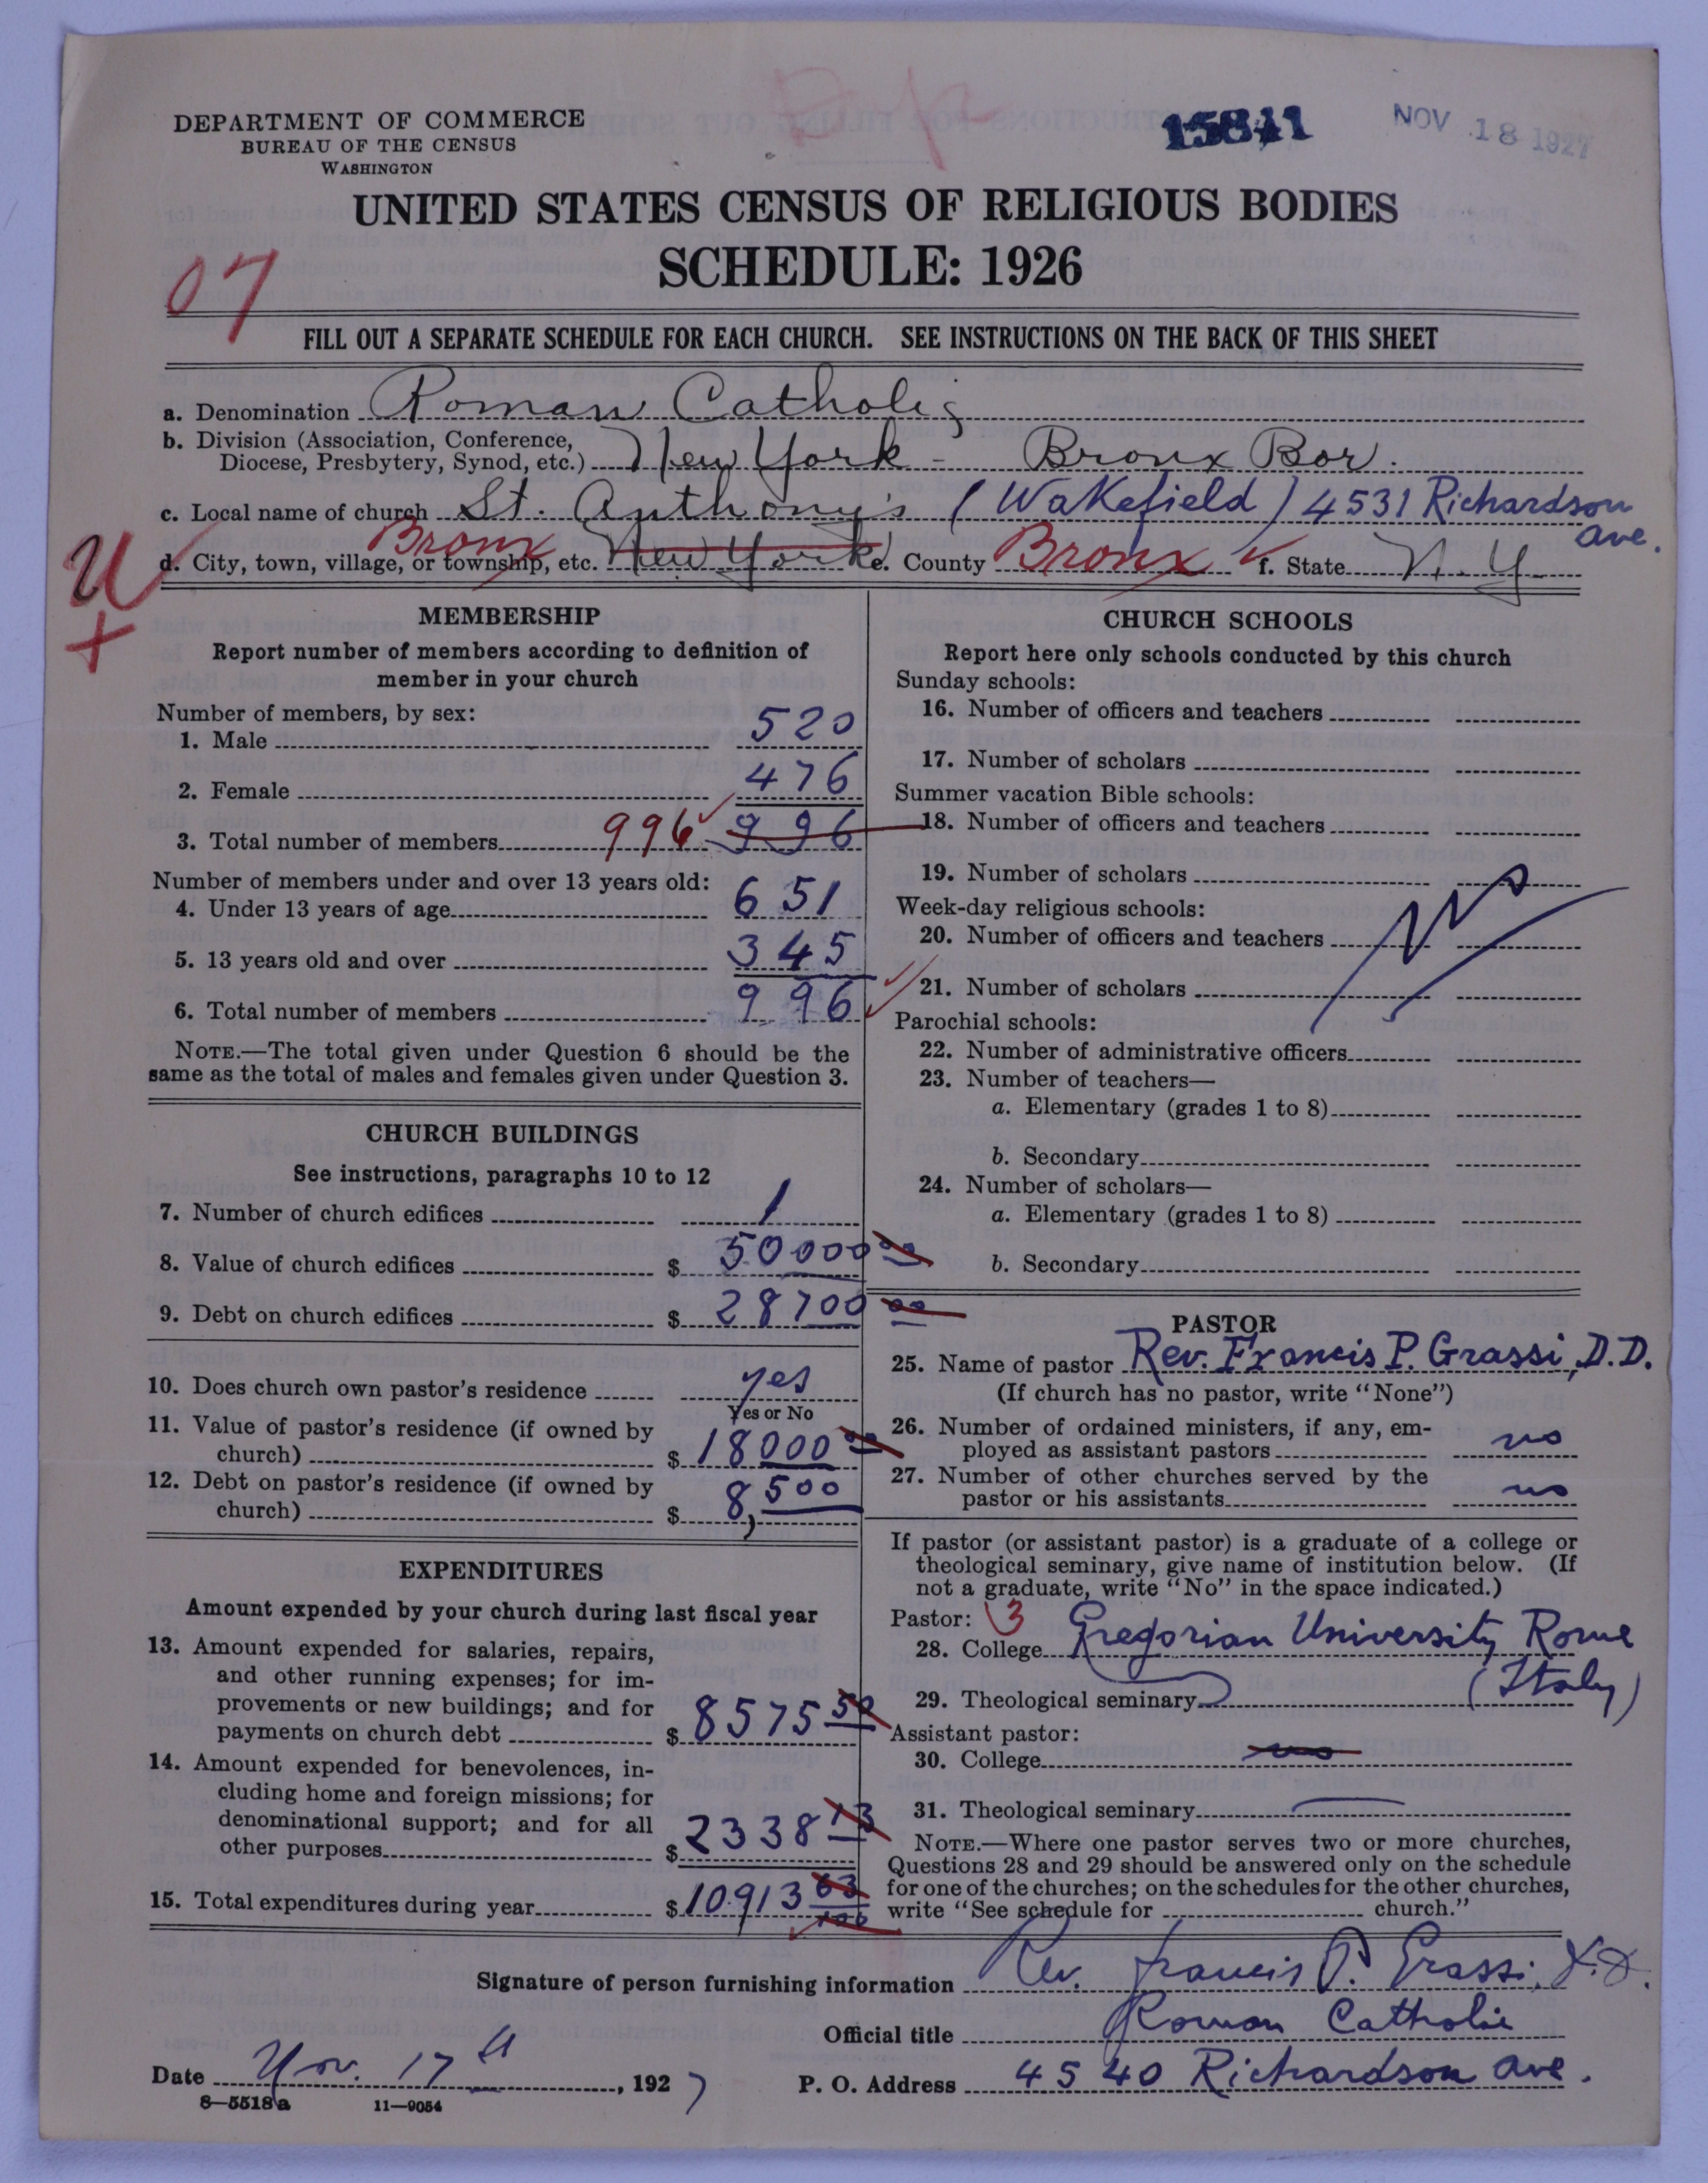 DEPARTMENT OF COMMERCE
BUREAU OF THE CENSUS
WASHINGTON
15841
NOV 18 1927
UNITED STATES CENSUS OF RELIGIOUS BODIES
SCHEDULE: 1926
07
FILL OUT A SEPARATE SCHEDULE FOR EACH CHURCH. SEE INSTRUCTIONS ON THE BACK OF THIS SHEET
a. Denomination Roman Catholic
b. Division (Association, Conference,
Diocese, Presbytery, Synod, etc.) New York - Bronx Bor.
c. Local name of church St. Anthony's (Wakefield) 4531 Richardson
Ave.
U
+
d. City, town, village, or township, etc. Bronx New York e. County Bronx f. State N.Y.
MEMBERSHIP
Report number of members according to definition of
member in your church
Number of members, by sex:
1. Male 520
2. Female 476
3. Total number of members 996 996
Number of members under and over 13 years old:
4. Under 13 years of age 651
5. 13 years old and over 345
6. Total number of members 996
NOTE.—The total given under Question 6 should be the
same as the total of males and females given under Question 3.
CHURCH BUILDINGS
See instructions, paragraphs 10 to 12
7. Number of church edifices 1
8. Value of church edifices $ 50000 00
9. Debt on church edifices $ 28700 00
10. Does church own pastor's residence yes
Yes or No
11. Value of pastor's residence (if owned by
church) $ 18000 00
12. Debt on pastor's residence (if owned by
church) $ 8,500
EXPENDITURES
Amount expended by your church during last fiscal year
13. Amount expended for salaries, repairs,
and other running expenses; for im-
provements or new buildings; and for
payments on church debt $ 8575 50
14. Amount expended for benevolences, in-
cluding home and foreign missions; for
denominational support; and for all
other purposes $ 2338 13
15. Total expenditures during year $ 10913 63/100
CHURCH SCHOOLS
Report here only schools conducted by this church
Sunday schools:
16. Number of officers and teachers
17. Number of scholars
Summer vacation Bible schools:
18. Number of officers and teachers
19. Number of scholars
Week-day religious schools:
20. Number of officers and teachers
21. Number of scholars
Parochial schools:
22. Number of administrative officers
23. Number of teachers—
a. Elementary (grades 1 to 8)
b. Secondary
24. Number of scholars—
a. Elementary (grades 1 to 8)
b. Secondary
PASTOR
25. Name of pastor Rev. Francis P. Grassi, D.D.
(If church has no pastor, write "None")
26. Number of ordained ministers, if any, em-
ployed as assistant pastors no
27. Number of other churches served by the
pastor or his assistants no
If pastor (or assistant pastor) is a graduate of a college or
theological seminary, give name of institution below. (If
not a graduate, write "No" in the space indicated.)
Pastor: 3
28. College Gregorian University Rome
(Italy)
29. Theological seminary
Assistant pastor:
30. College no
31. Theological seminary
NOTE.—Where one pastor serves two or more churches,
Questions 28 and 29 should be answered only on the schedule
for one of the churches; on the schedules for the other churches,
write "See schedule for church."
Signature of person furnishing information Rev. Francis P. Grassi, D.D.
Official title Roman Catholic
Date Nov. 17th, 1927
P. O. Address 4540 Richardson Ave.
8—5518a 11—9054